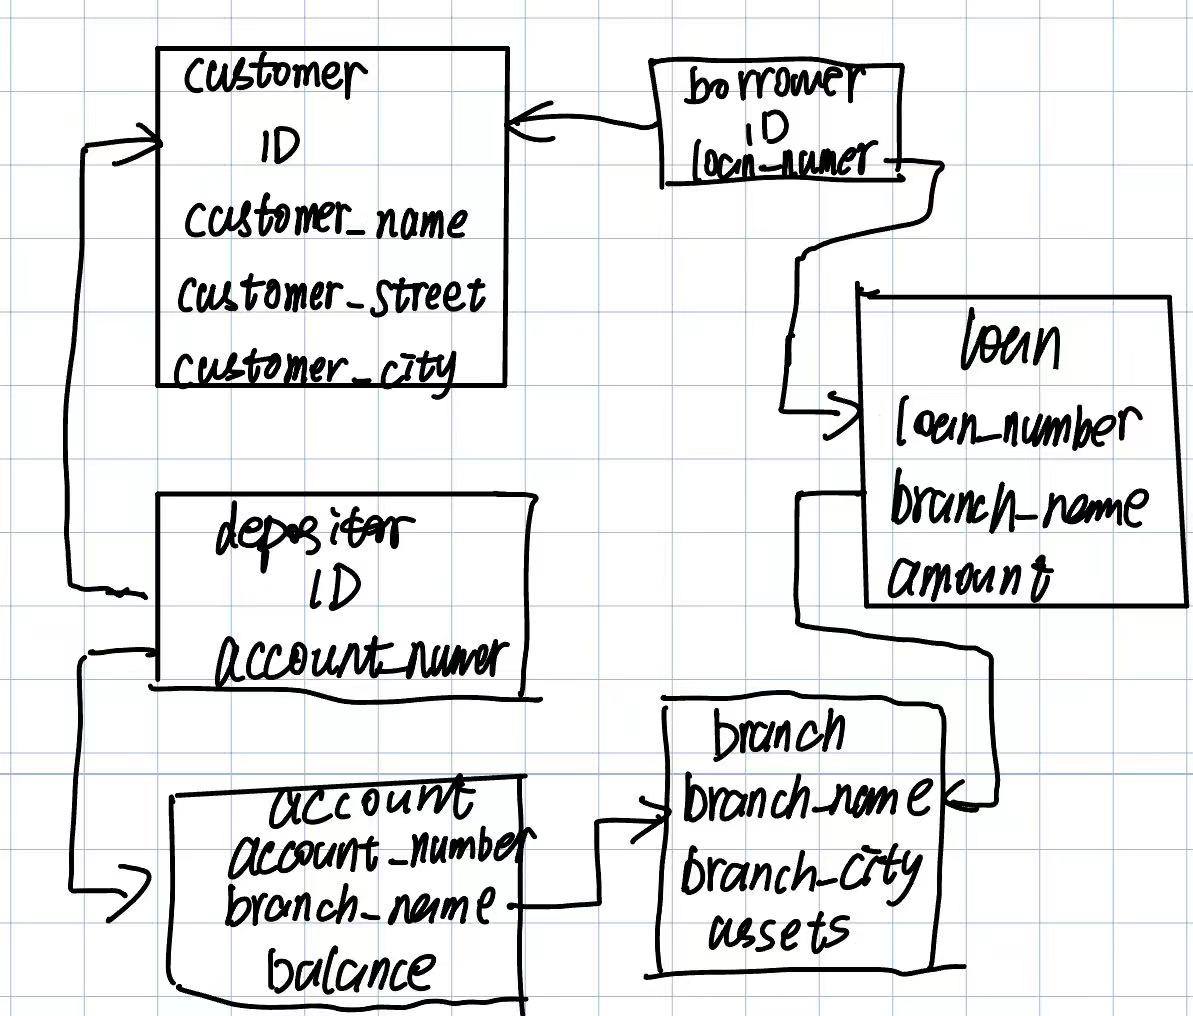 customer
ID
customer_name
customer_street
customer_city
borrower
ID
loan_numer
loan
loan_number
branch_name
amount
depositor
ID
account_numer
account
account_number
branch_name
balance
branch
branch_name
branch_city
assets